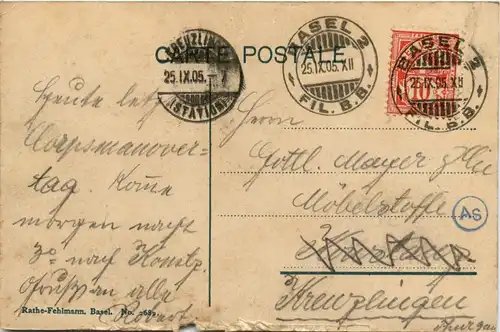 CARTE POSTALE
KREUZLINGEN
25.IX.05.-7
(STATION)
BASEL 2
25.IX.05.XII
FIL. B.B.
BASEL 2
25.IX.05.XII
FIL. B.B.
Heute letzt
Corpsmanöver-
tag. Komme
morgen nacht
nach Konstz.
Gruss an alle
Robert
Herrn
Gottl. Mayer
Möbelstoffe
Kreuzlingen
Thurgau
AS
Rathe-Fehlmann, Basel. No. 2682.